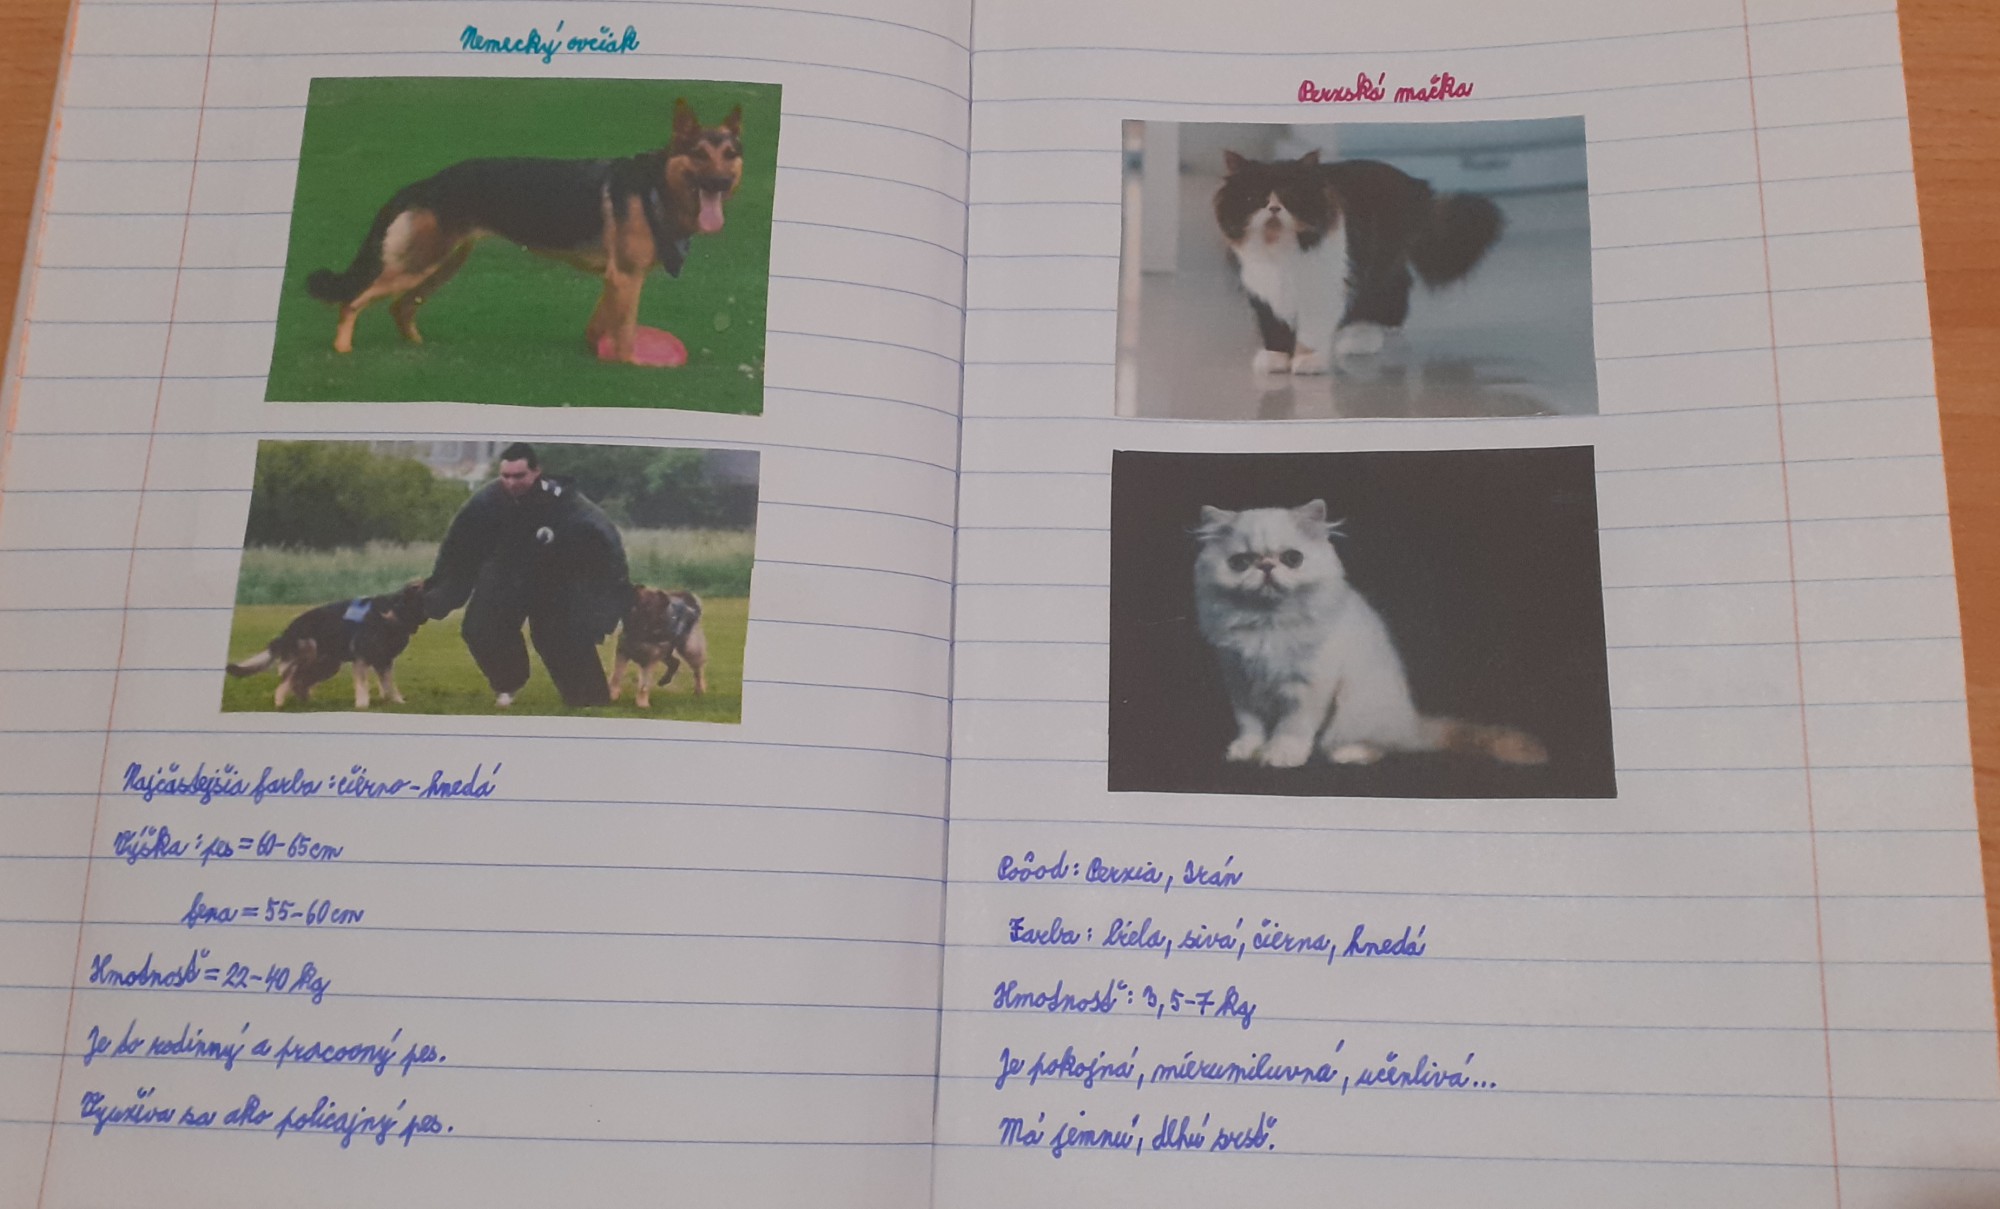 Nemecký ovčiak
Najčastejšia farba: čierno-hnedá
Výška: pes = 60-65cm
fena = 55-60cm
Hmotnosť = 22-40 kg
Je to rodinný a pracovný pes.
Využíva sa ako policajný pes.
Perzská mačka
Pôvod: Perzia, Irán
Farba: biela, sivá, čierna, hnedá
Hmotnosť: 3,5-7 kg
Je pokojná, mierumiluvná, učenlivá...
Má jemnú, dlhú srsť.